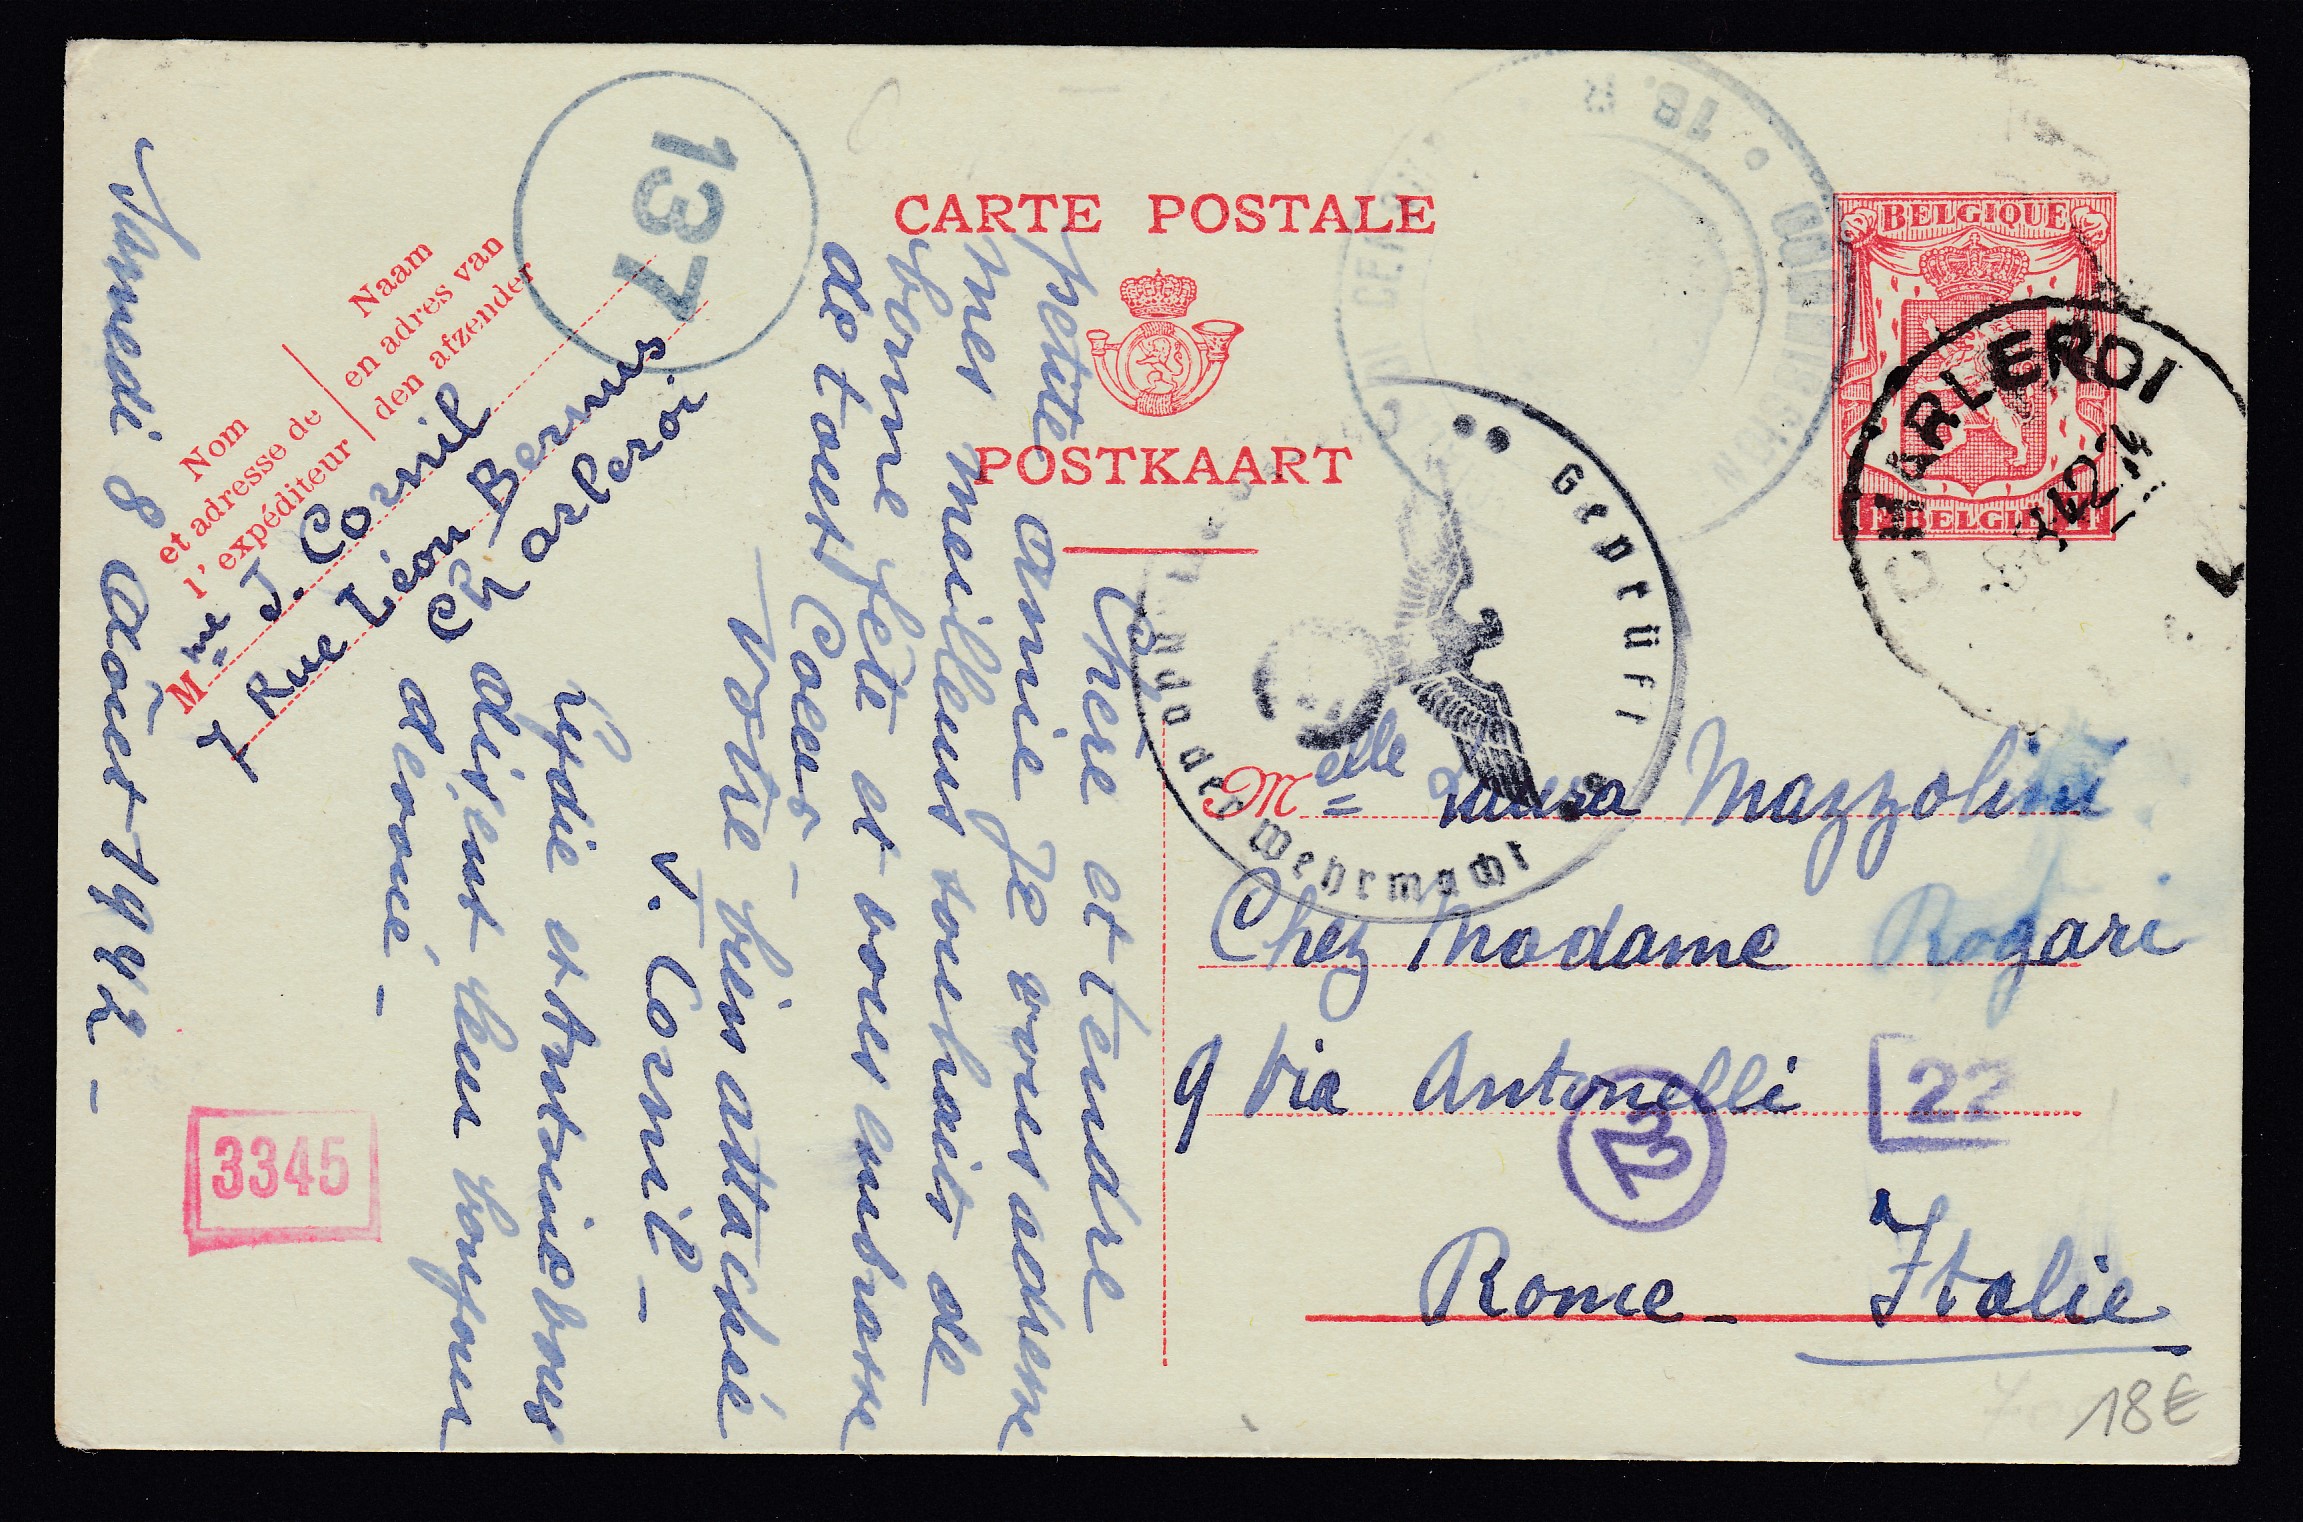 CARTE POSTALE
POSTKAART
BELGIQUE
1F BELGIË 1F
CHARLEROI
12
137
18.
Geprüft
der Wehrmacht
Nom
et adresse de
l'expéditeur
Naam
en adres van
den afzender
Mme J. Cornil
Rue Léon Bernus
Charleroi.
Samedi 8 Août 1942 –
Chère et tendre
petite amie Je vous adresse
mes meilleurs souhaits de
bonne fête et vous embrasse
de tout Coeur –
Votre bien attachée
J. Cornil –
Lydie et Antoine vous
disent leur bonjour
dévoué –
Melle Luisa Mazzolini
Chez Madame Rogari
9 Via Antonelli
Rome – Italie
3345
22
18€